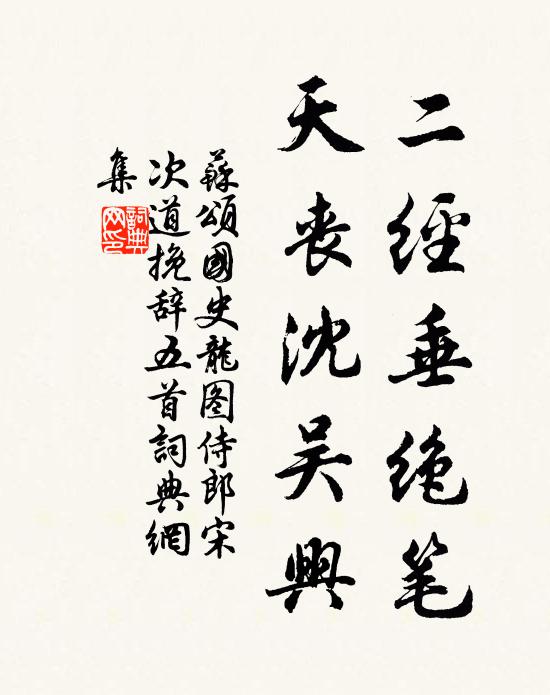 二經垂绝笔
天丧沈吴興
蘇頌國史龍图侍郎宋
次道挽辞五首詞典網
集
詞典网印